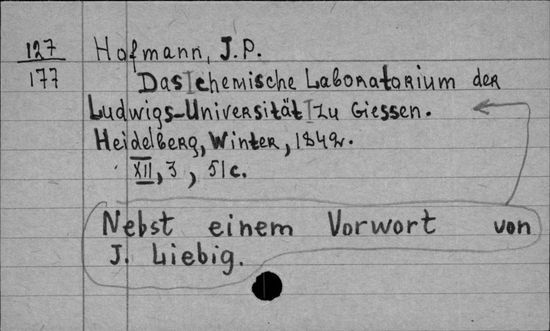 127
177
Hofmann, J.P.
Das chemische Laboratorium der
Ludwigs-Universität zu Giessen.
Heidelberg, Winter, 1842.
XII, 3, 51c.
Nebst einem Vorwort von
J. Liebig.